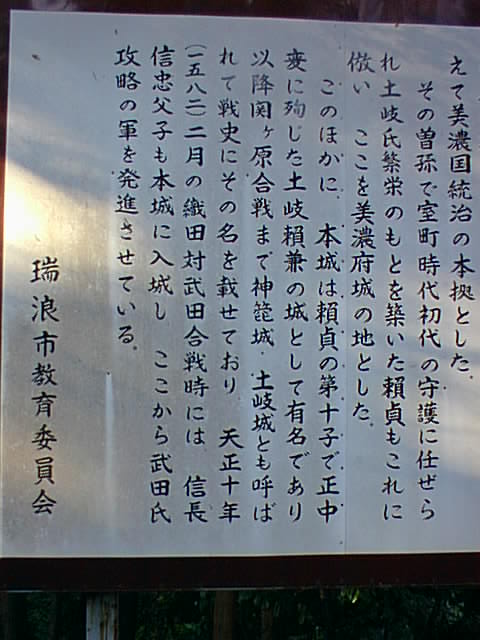 えて美濃国統治の本拠とした。
その曽孫で室町時代初代の守護に任ぜら
れ土岐氏繁栄のもとを築いた頼貞もこれに
倣い ここを美濃府城の地とした。
このほかに、本城は頼貞の第十子で正中
変に殉じた土岐頼兼の城として有名であり
以降関ヶ原合戦まで神箆城、土岐城とも呼ば
れて戦史にその名を載せており 天正十年
(一五八二)二月の織田対武田合戦時には 信長
信忠父子も本城に入城し ここから武田氏
攻略の軍を発進させている。
瑞浪市教育委員会